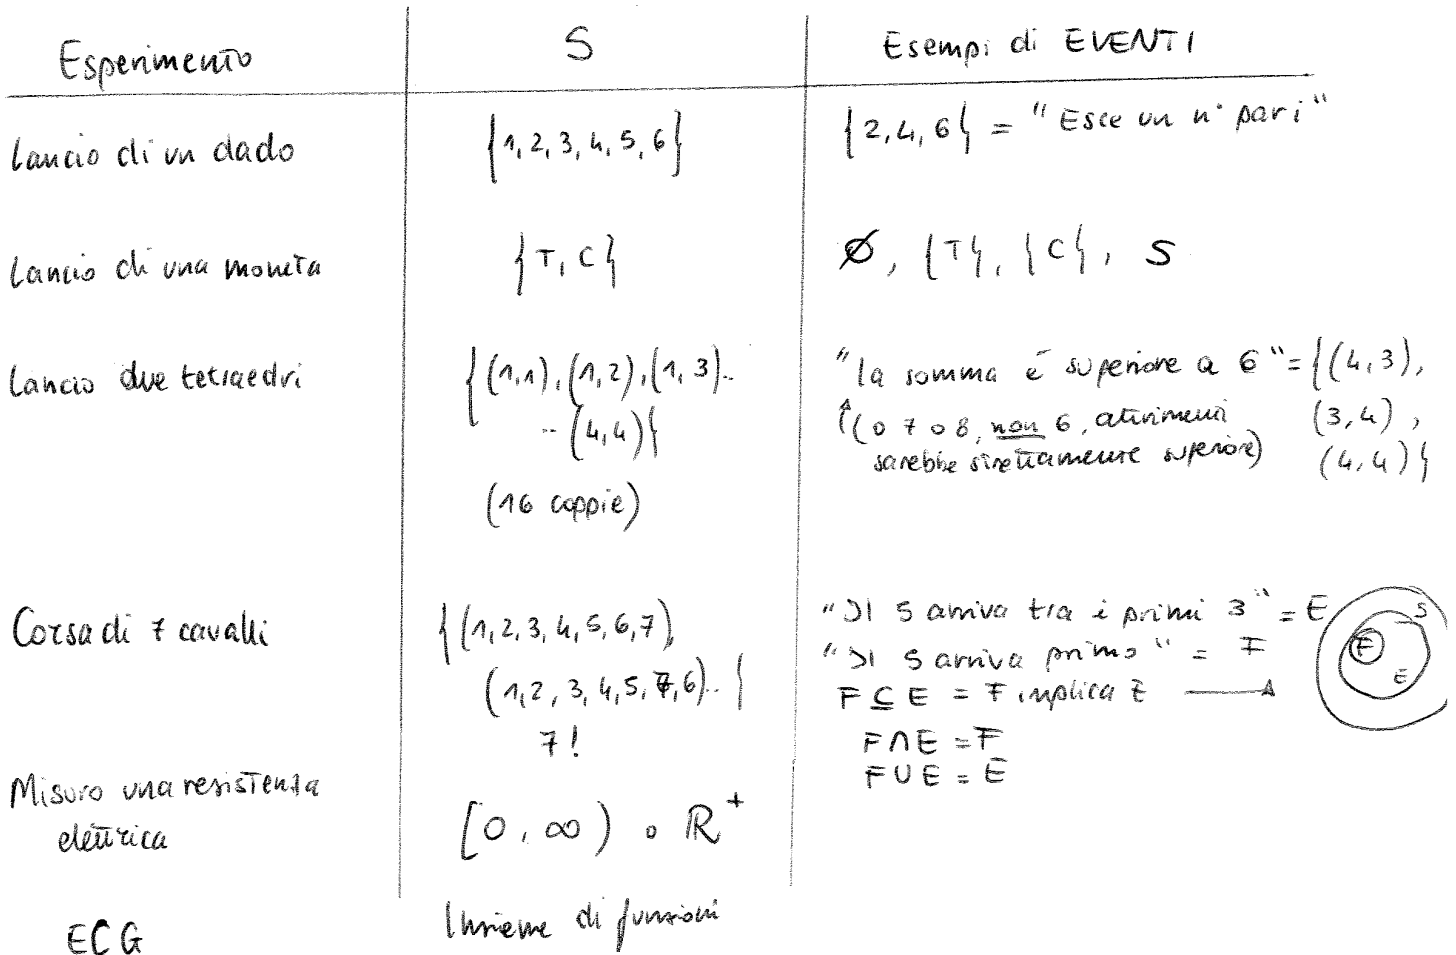 Esperimento S Esempi di EVENTI
Lancio di un dado {1, 2, 3, 4, 5, 6} {2, 4, 6} = "Esce un n° pari"
Lancio di una moneta {T, C} Ø, {T}, {C}, S
Lancio due tetraedri {(1,1), (1,2), (1,3)..
.. (4,4)}
(16 coppie)
"la somma è superiore a 6" = {(4,3),
(o 7 o 8, non 6, altrimenti (3,4),
sarebbe strettamente superiore) (4,4)}
Corsa di 7 cavalli {(1,2,3,4,5,6,7),
(1,2,3,4,5,7,6)..}
7!
"Il 5 arriva tra i primi 3" = E
"Il 5 arriva primo" = F
F ⊆ E = F implica E
F ∩ E = F
F ∪ E = E
S
F
E
Misuro una resistenza
elettrica
[0, ∞) o ℝ⁺
ECG Insieme di funzioni